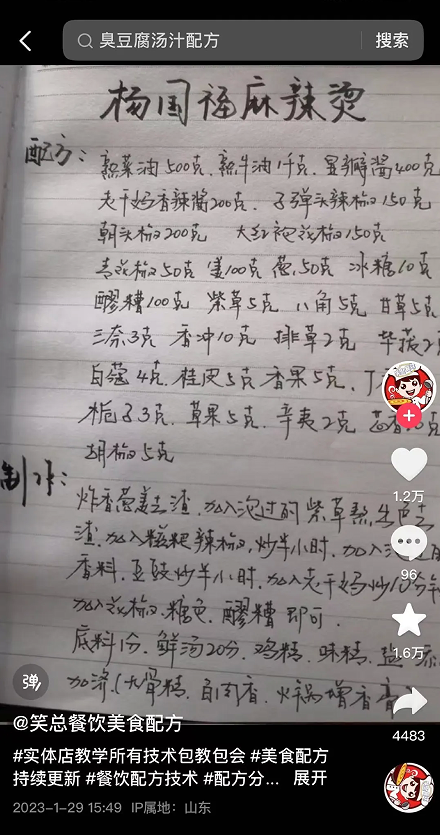 臭豆腐汤汁配方
搜索
杨国福麻辣烫
配方:
熟菜油500克、熟牛油1千克、豆瓣酱400克
老干妈香辣酱200克、子弹头辣椒150克
朝天椒200克 大红袍花椒150克
青花椒50克 姜100克 葱50克 冰糖10克
醪糟100克 紫草5克 八角5克 甘草5克
三奈3克 香冲10克 排草2克 荜拨2
白蔻4克、桂皮5克 香果5克、丁
栀子3克、草果5克、辛夷2克
胡椒5克
制作:
炸香葱姜去渣、加入泡过的紫草熬出色去
渣、加入糍粑辣椒,炒半小时、加入泡过的
香料、豆豉炒半小时、加入老干妈炒10分
加入花椒、糖色、醪糟即可.
底料1份、鲜汤20份、鸡精、味精、盐、
加济(大骨精、自肉香、火锅增香膏
1.2万
96
1.6万
4483
弹
@笑总餐饮美食配方
#实体店教学所有技术包教包会 #美食配方
持续更新 #餐饮配方技术 #配方分... 展开
2023-1-29 15:49 IP属地:山东